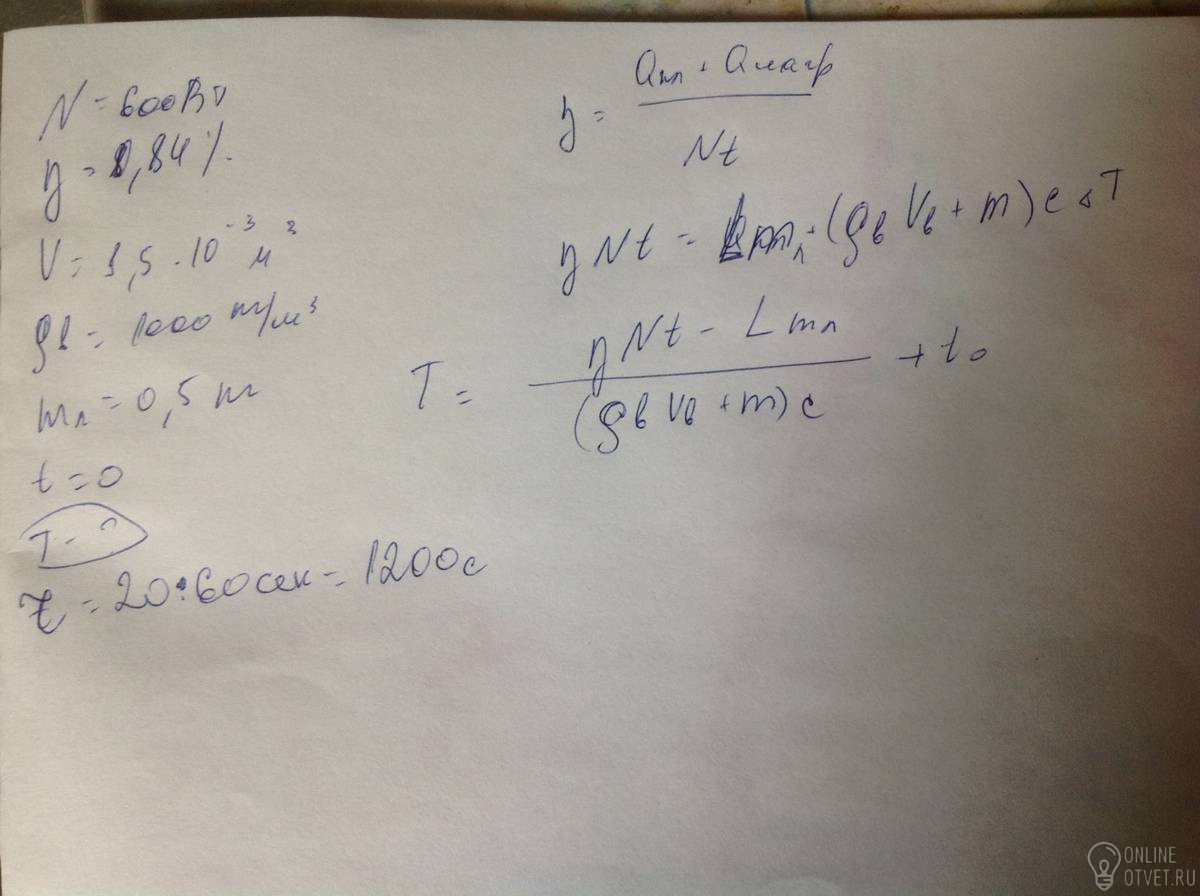 N = 600Вт
η = 0,84%
V = 1,5 · 10⁻³ м³
ρв = 1000 кг/м³
mл = 0,5 кг
t = 0
T - ?
t = 20·60сек = 1200с
η = (Qпл + Qнагр) / Nt
ηNt = Lmл + (ρв Vв + m) c ΔT
T = (ηNt - Lmл) / ((ρв Vв + m) c) + t₀
ONLINE
OTVET.RU